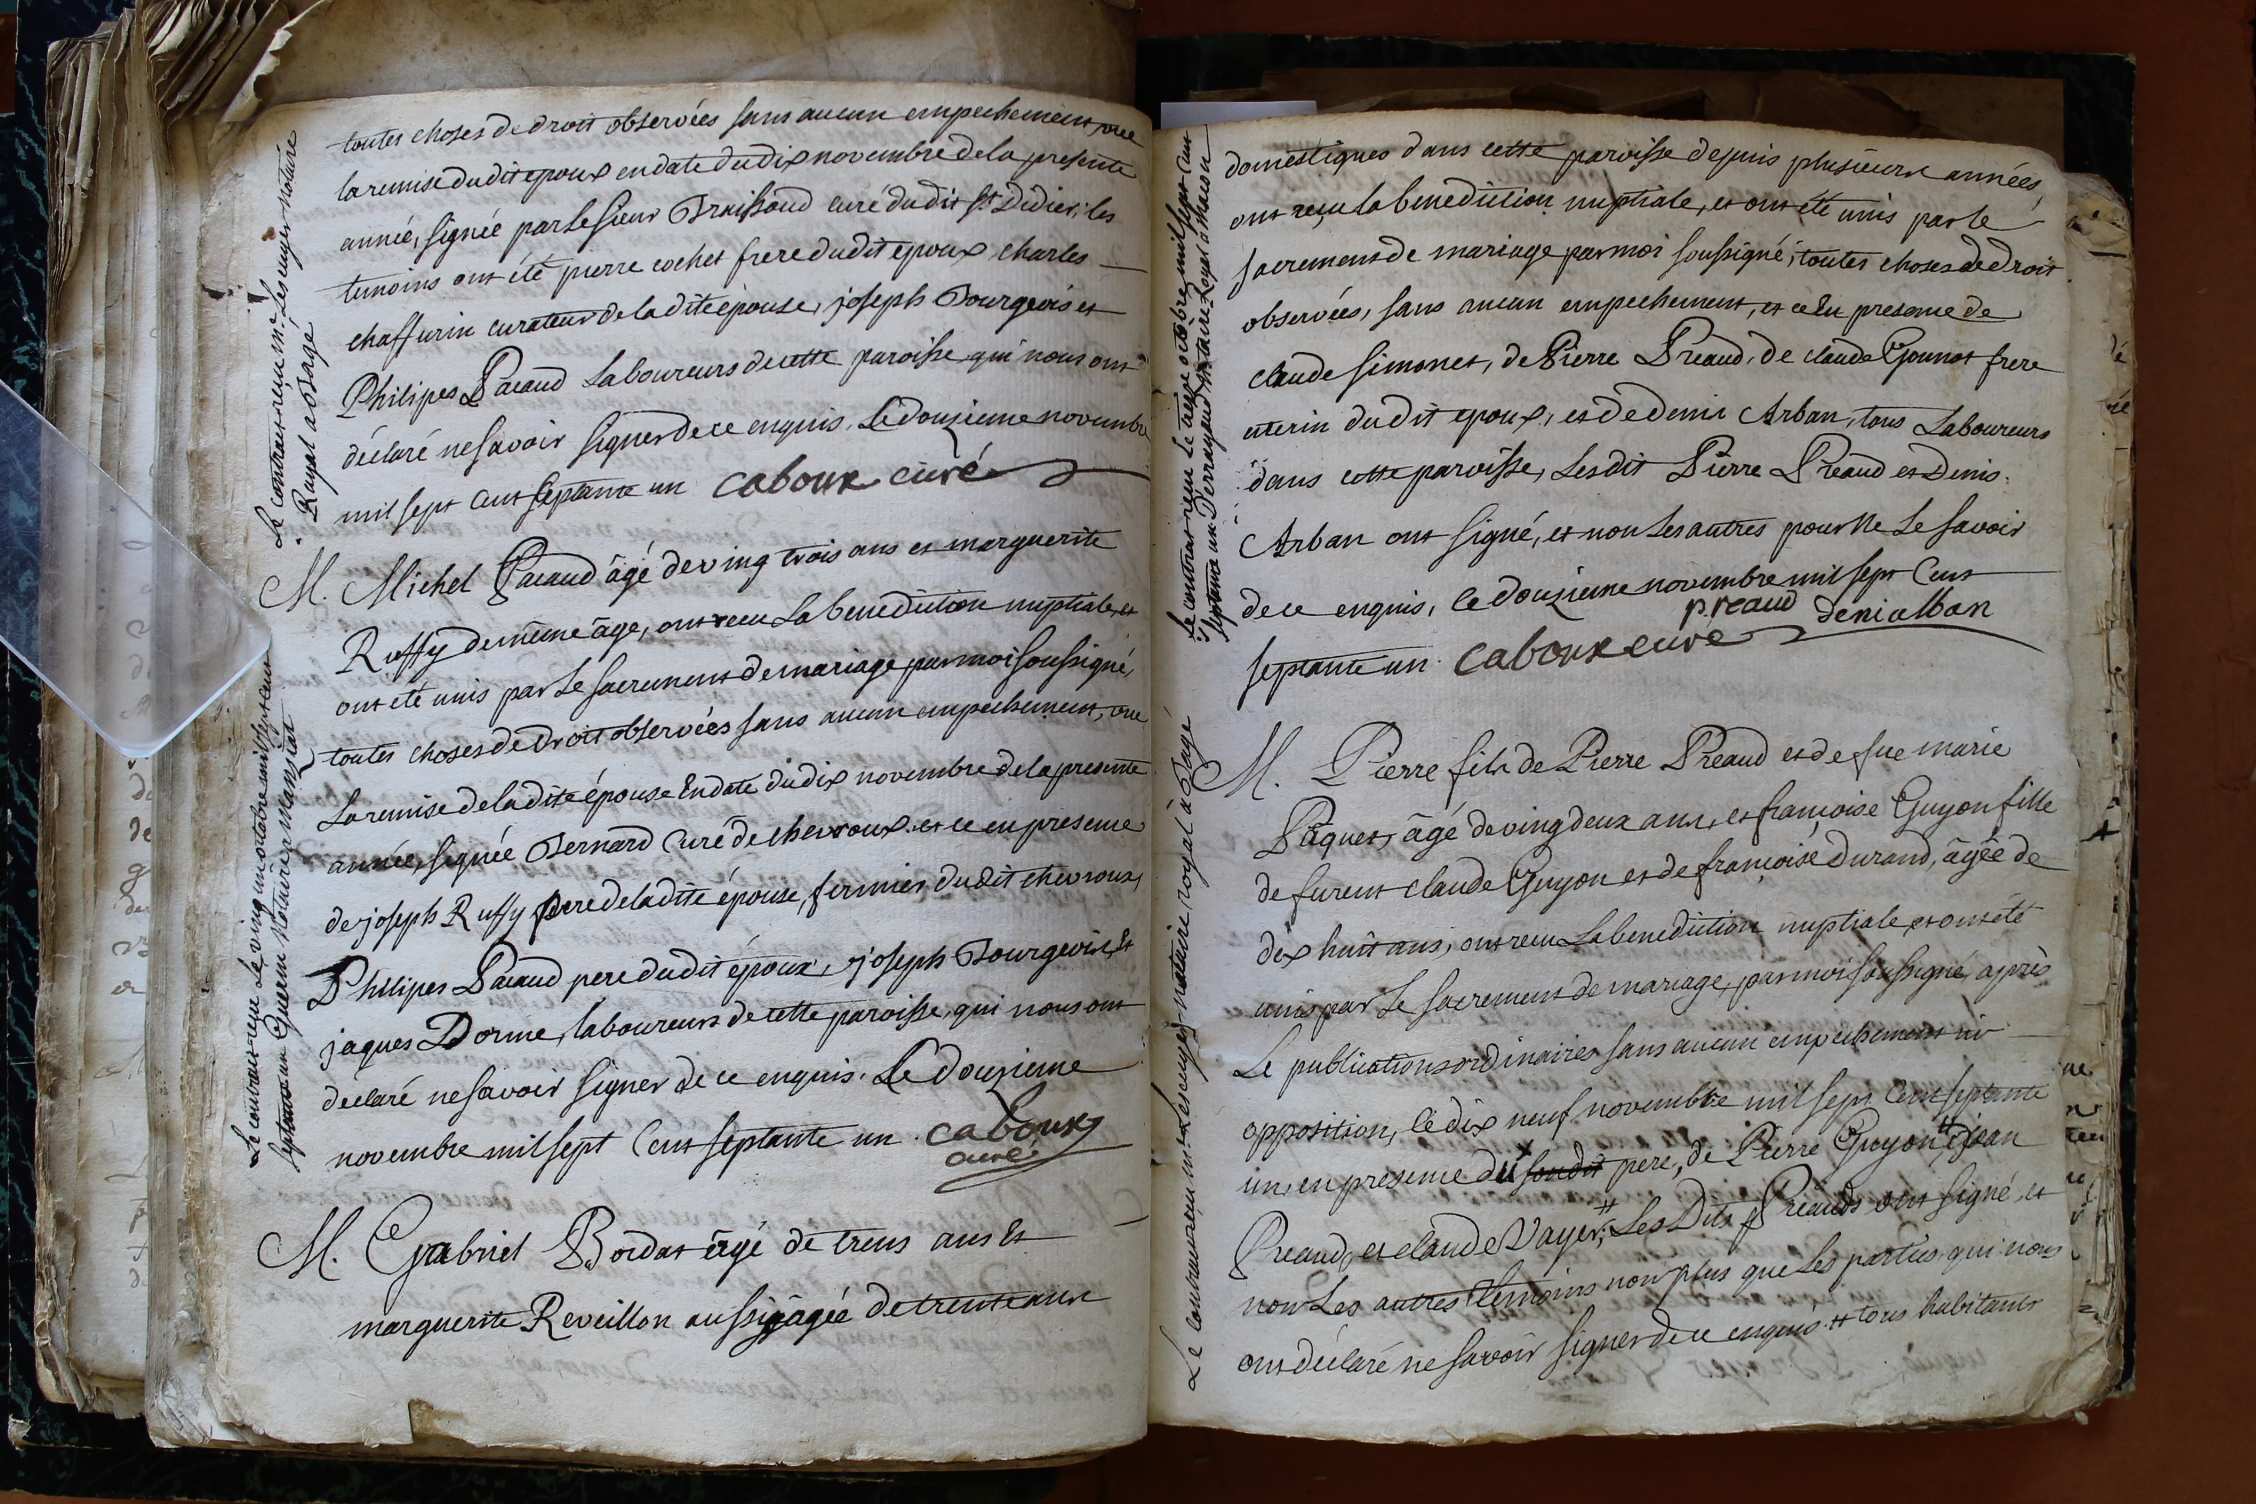 toutes choses de droit observées sans aucun empechement, vue
la remise dudit epoux en date du dix novembre de la presente
année, signée par le sieur Fraissoud curé dudit St Didier; les
temoins ont été pierre cochet frere dudit epoux, charles
chaffurin curateur de la dite épouse, joseph Bourgeois et
Philipes Pacaud laboureurs de cette paroisse qui nous ont
déclaré ne savoir signer de ce enquis. Le douzieme novembre
mil sept cent septante un caboux curé
Le contrat reçu Me Lescuyer notaire
Royal a Bagé
M. Michel Pacaud âgé de ving trois ans et marguerite
Ruffy de même âge, ont recu la benediction nuptiale, et
ont été unis par le sacrement de mariage par moi soussigné,
toutes choses de droit observées sans aucun empechement, vue
la remise de la dite épouse en date du dix novembre de la presente
année, signée Bernard Curé de chevroux et ce en presence
de joseph Ruffy pere de la dite épouse, fermier dudit chevroux,
Philipes Pacaud pere dudit époux, joseph Bourgeois, et
jaques Dorme, laboureurs de cette paroisse, qui nous ont
déclaré ne savoir signer de ce enquis. Le douzieme
novembre mil sept Cent septante un. caboux
curé
Le contrat reçu le ving un octobre mil sept cent
septante un Guerin Notaire à Manziat
M. Gabriel Bordat âgé de trens ans et
marguerite Reveillon aussi âgée de trente ans
domestiques dans cette paroisse depuis plusieurs années,
ont reçu la benediction nuptiale, et ont été unis par le
sacrement de mariage par moi soussigné, toutes choses de droit
observées, sans aucun empechement, et ce en presence de
claude simonet, de Pierre Preaud, de claude Gounot frere
uterin dudit epoux, et de denis Arban, tous Laboureurs
dans cette paroisse, Lesdit Pierre Preaud et Denis
Arban ont signé, et non les autres pour ne le savoir
de ce enquis, le douzieme novembre mil sept Cent
p. reaud deni alban
septante un. caboux curé
Le contrat reçu le onze octobre mil sept Cent
septante un Derrayaud Notaire Royal à Macon
M. Pierre fils de Pierre Preaud et de fue marie
Pâquet, âgé de ving deux ans, et françoise Guyon fille
de furent claude Guyon et de françoise Durand, âgée de
dix huit ans, ont recu La benediction nuptiale, et ont été
unis par le sacrement de mariage, par moi soussigné, après
Le publications ordinaires sans aucun empechement ni
opposition, le dix neuf novembre mil sept Cent septante
un, en presence du sondit pere, de Pierre Guyon, # jean
Preaud, et claude Vayer; # Les Dits Preauds ont signé, et
non Les autres temoins non plus que les parties qui nous
ont déclaré ne savoir signer de ce enquis. # tous habitants
Le contrat reçu me Lescuyer notaire royal à Bagé